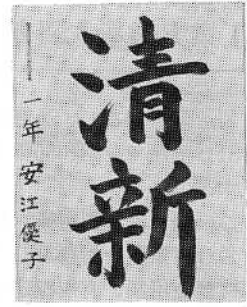 清新
一年 安江優子